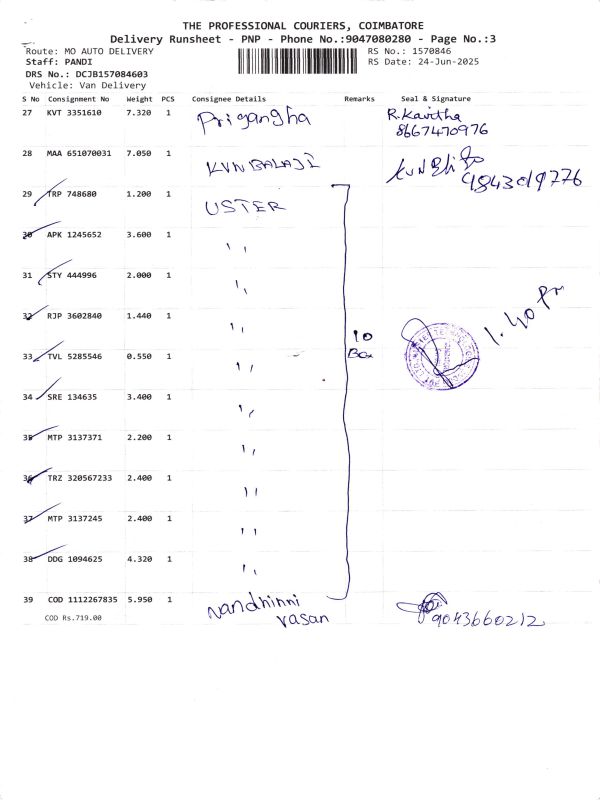 THE PROFESSIONAL COURIERS, COIMBATORE
Delivery Runsheet - PNP - Phone No.:9047080280 - Page No.:3
Route: MO AUTO DELIVERY RS No.: 1570846
Staff: PANDI RS Date: 24-Jun-2025
DRS No.: DCJB157084603
Vehicle: Van Delivery
S No Consignment No Weight PCS Consignee Details Remarks Seal & Signature
27 KVT 3351610 7.320 1 Priyangha R.Kavitha
8667470976
28 MAA 651070031 7.050 1 KVN BALAJI
9843019776
29 TRP 748680 1.200 1 USTER
30 APK 1245652 3.600 1 ,,
31 STY 444996 2.000 1 ,,
32 RJP 3602840 1.440 1 ,, 10 1.40 Pm
33 TVL 5285546 0.550 1 ,, Box
34 SRE 134635 3.400 1 ,,
35 MTP 3137371 2.200 1 ,,
36 TRZ 320567233 2.400 1 ,,
37 MTP 3137245 2.400 1 ,,
38 DDG 1094625 4.320 1 ,,
39 COD 1112267835 5.950 1 Nandhinni
COD Rs.719.00 vasan 9043660212